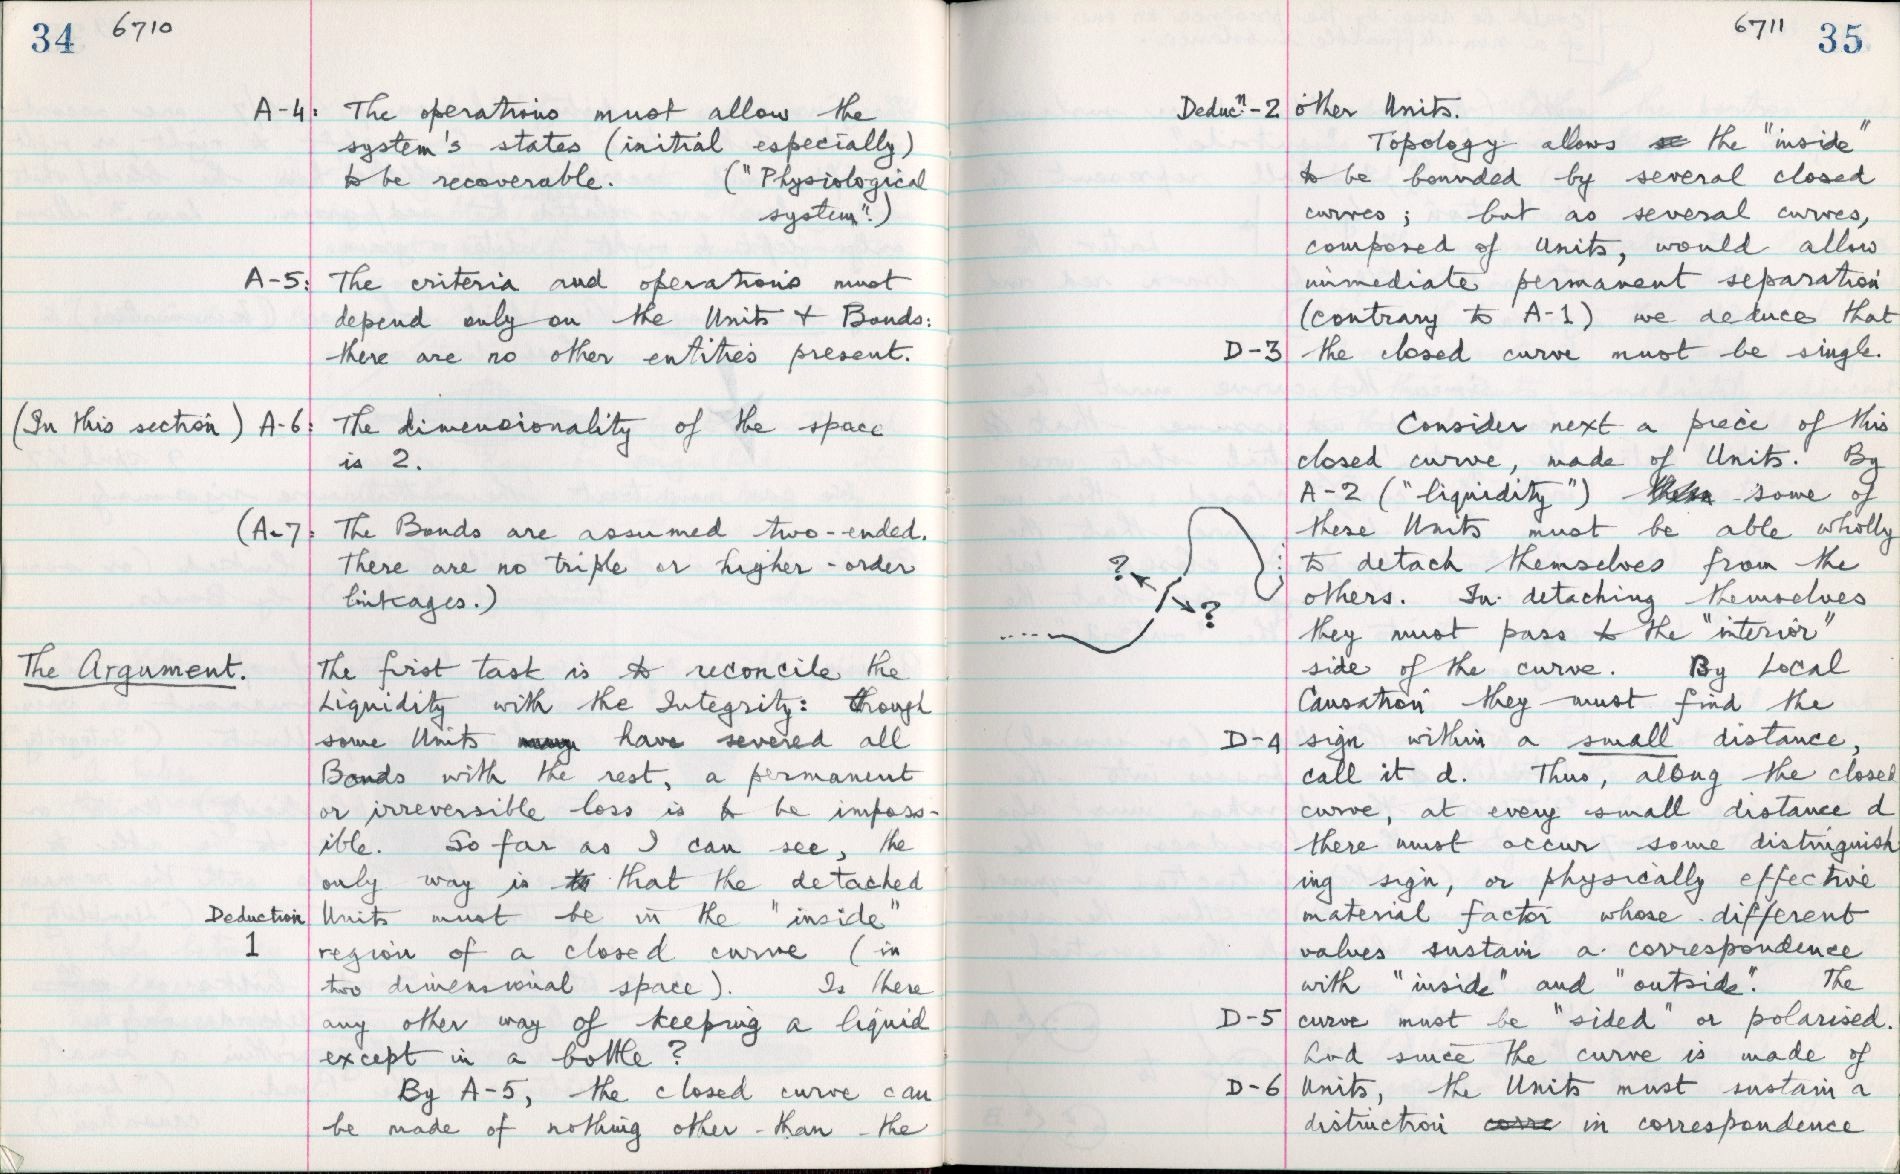 34 6710
A-4: The operations must allow the
system's states (initial especially)
to be recoverable. ("Physiological
system".)
A-5: The criteria and operations must
depend only on the Units & Bonds:
there are no other entities present.
(In this section) A-6: The dimensionality of the space
is 2.
(A-7: The Bonds are assumed two-ended.
There are no triple or higher-order
linkages.)
The Argument. The first task is to reconcile the
Liquidity with the Integrity: though
some Units may have severed all
Bonds with the rest, a permanent
or irreversible loss is to be imposs-
ible. So far as I can see, the
only way is to that the detached
Deduction Units must be in the "inside"
1 region of a closed curve (in
two dimensional space). Is there
any other way of keeping a liquid
except in a bottle?
By A-5, the closed curve can
be made of nothing other than the
6711 35
Deducn.-2 other Units.
Topology allows the "inside"
to be bounded by several closed
curves; but as several curves,
composed of Units, would allow
immediate permanent separation
(contrary to A-1) we deduce that
D-3 the closed curve must be single.
Consider next a piece of this
closed curve, made of Units. By
A-2 ("liquidity") some of
these Units must be able wholly
to detach themselves from the
others. In detaching themselves
they must pass to the "interior"
side of the curve. By Local
Causation they must find the
D-4 sign within a small distance,
call it d. Thus, along the closed
curve, at every small distance d
there must occur some distinguish
ing sign, or physically effective
material factor whose different
values sustain a correspondence
with "inside" and "outside". The
D-5 curve must be "sided" or polarised.
And since the curve is made of
D-6 Units, the Units must sustain a
distinction corre in correspondence
?
?